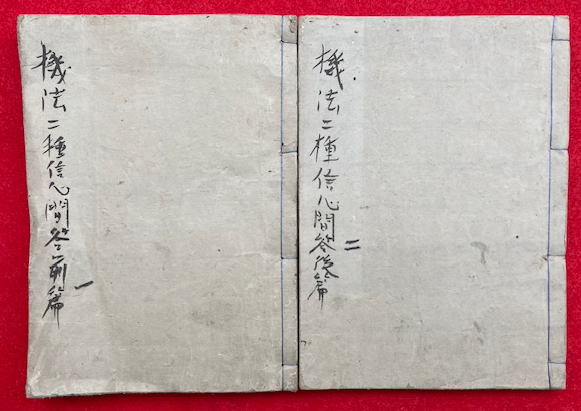 機法二種信心問答前篇
一
機法二種信心問答後篇
二